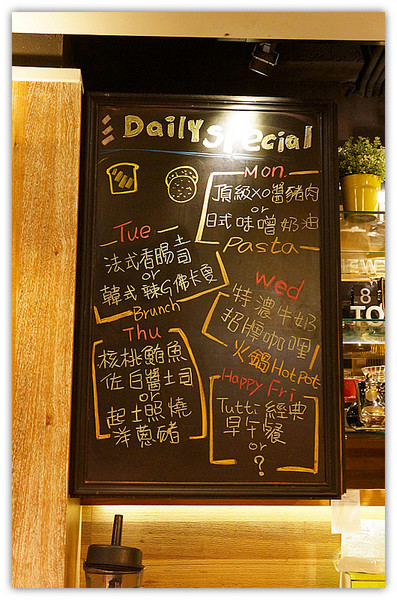 Daily Special
Mon.
頂級XO醬豬肉
or
日式味噌奶油
Pasta
Tue
法式香腸吉
or
韓式辣G佛卡夏
Brunch
Wed
特濃牛奶
招牌咖哩
火鍋Hot Pot
Thu
核桃鮪魚
佐白醬土司
or
起士照燒
洋蔥豬
Happy Fri
Tutti 經典
早午餐
or
?
8
TO